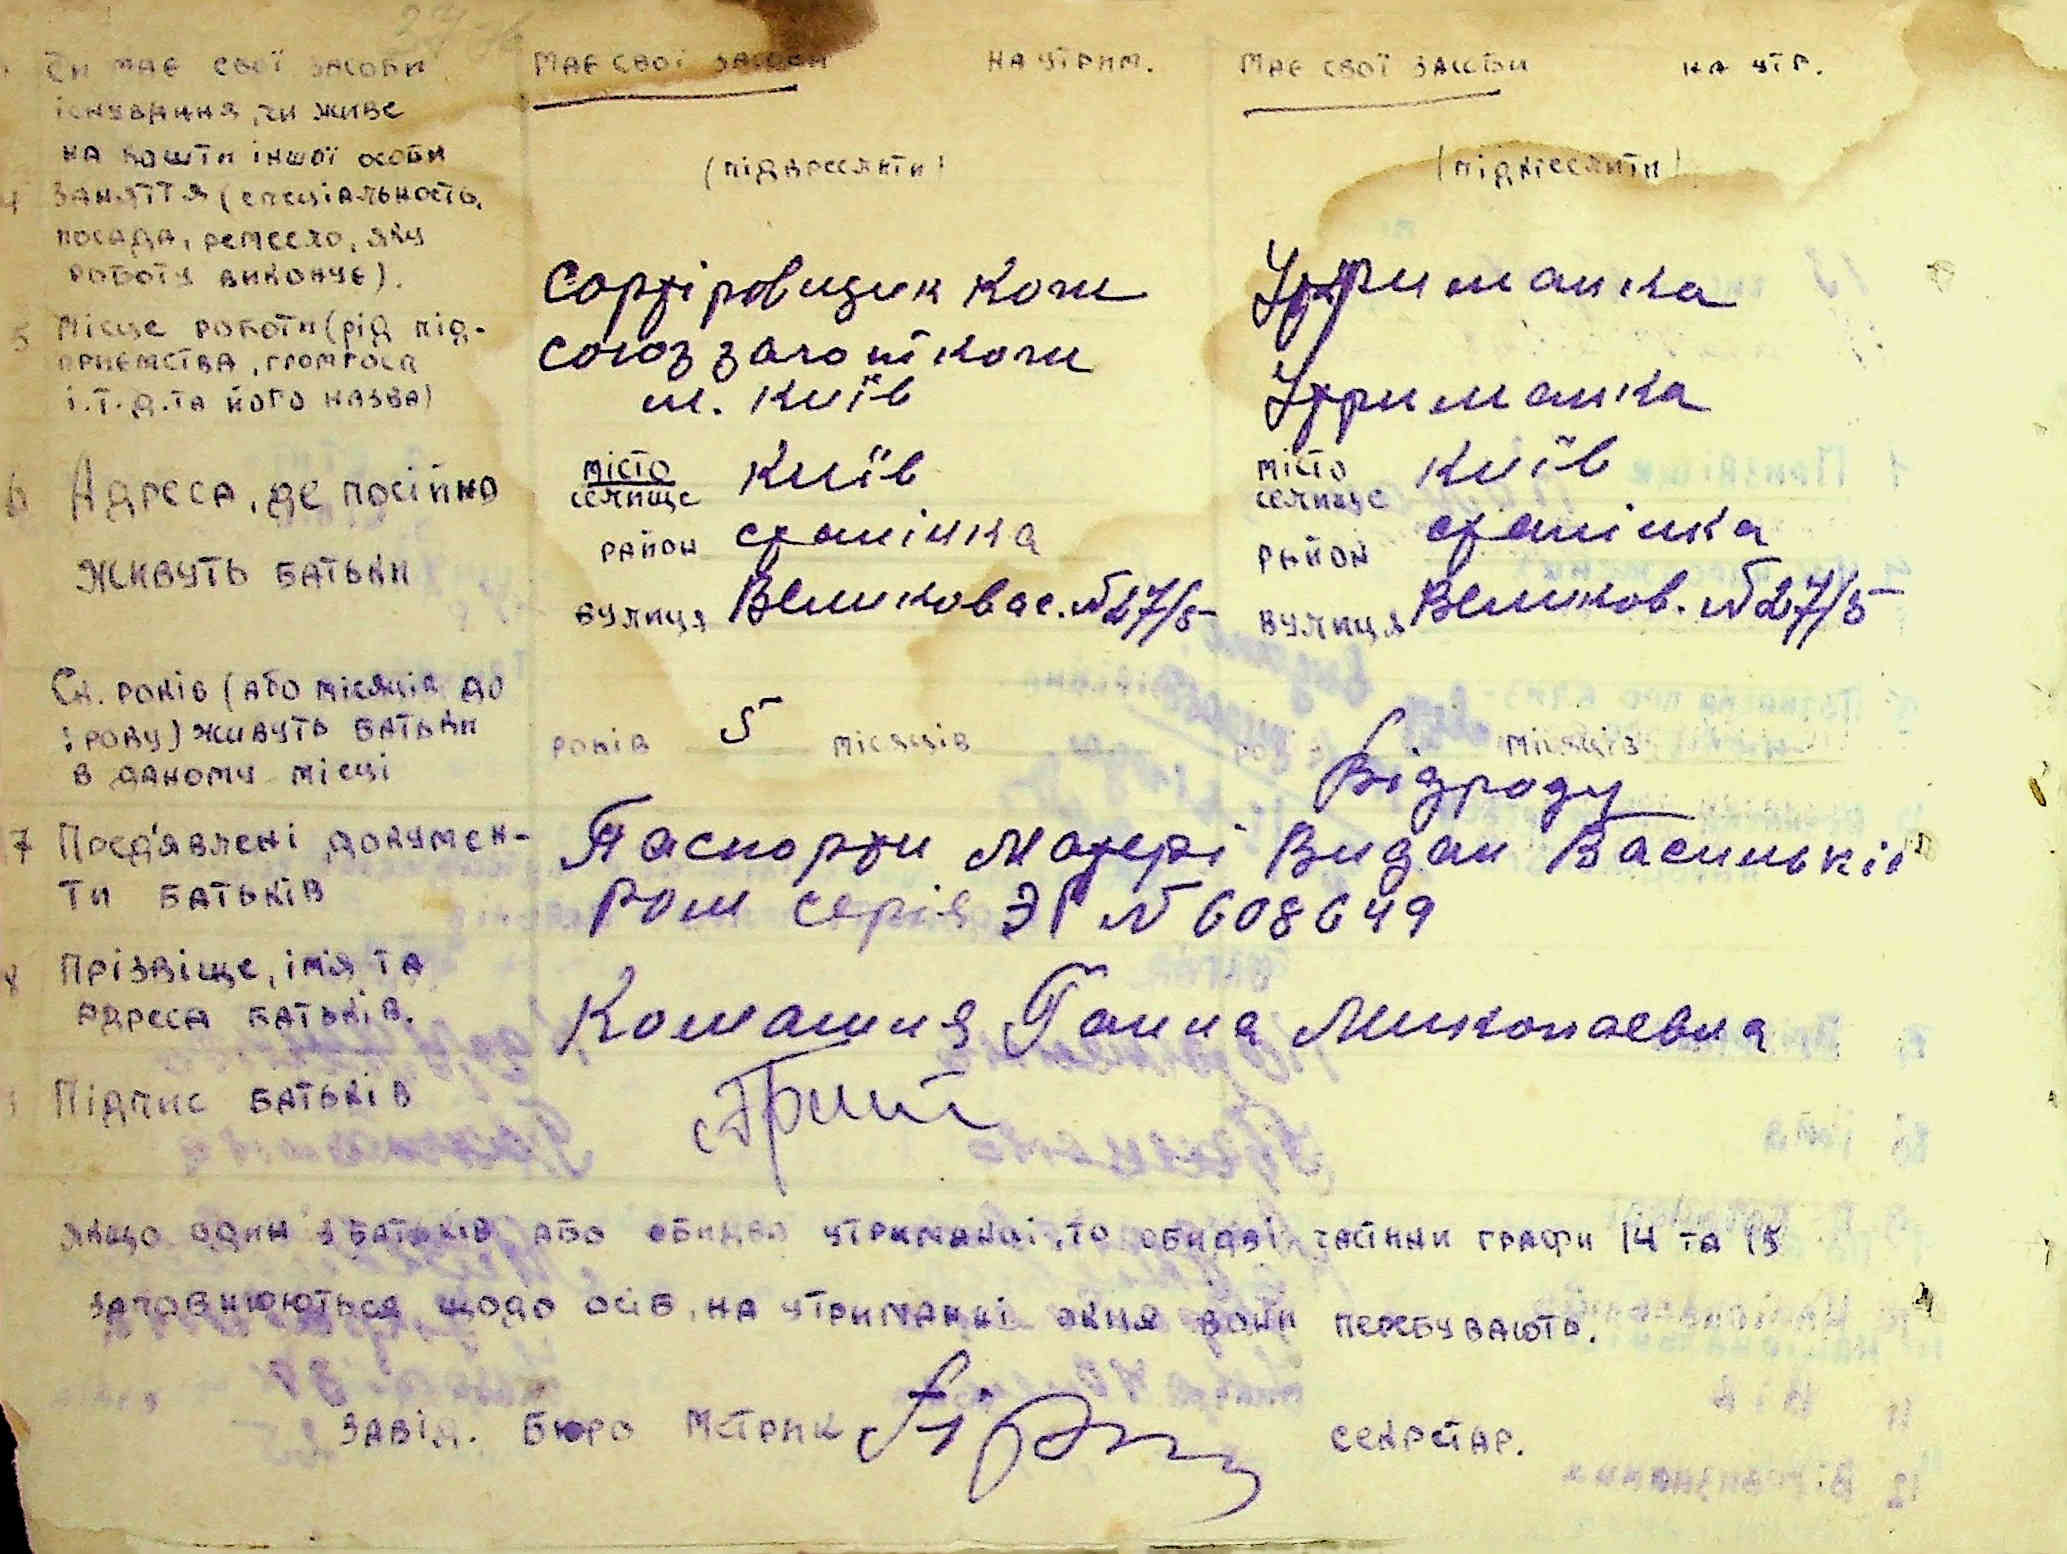 Чи має свої засоби Має свої засоби на утрим. Має свої засоби на утр.
існування, чи живе
на кошти іншої особи (підкреслити) (підкреслити)
4 Заняття (спеціальность,
посада, ремесло, яку
роботу виконує). Сортіровщик кожи Утриманка
5 Місце роботи (рід під-
приємства, громгосп Союззаготкожи
і.т.д. та його назва) м. Київ Утриманка
6 Адреса, де постійно місто Київ місто Київ
селище селище
живуть батьки район сталінка район сталінка
вулиця Великовас. № 27/5 вулиця Великов. № 27/5
Ск. років (або місяців до
1 року) живуть батьки років 5 місяців років місяців
в даному місці Відроду
7 Пред'явлені докумен- Паспорти Матері Видан Васильків
ти батьків ром серія ЭГ № 608649
8 Прізвіще, імя та
адреса батьків. Ганна Миколаевна
Підпис батьків
Якщо один з батьків або обидва утриманці, то обидві графи 14 та 15
заповнюються щодо осіб, на утриманні яких вони перебувають.
Завід. Бюро Метрик Секретар.